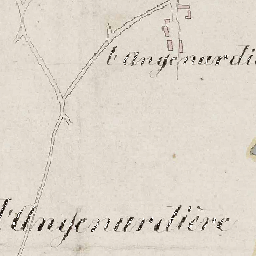 l'Angenardi
l'Angenardière